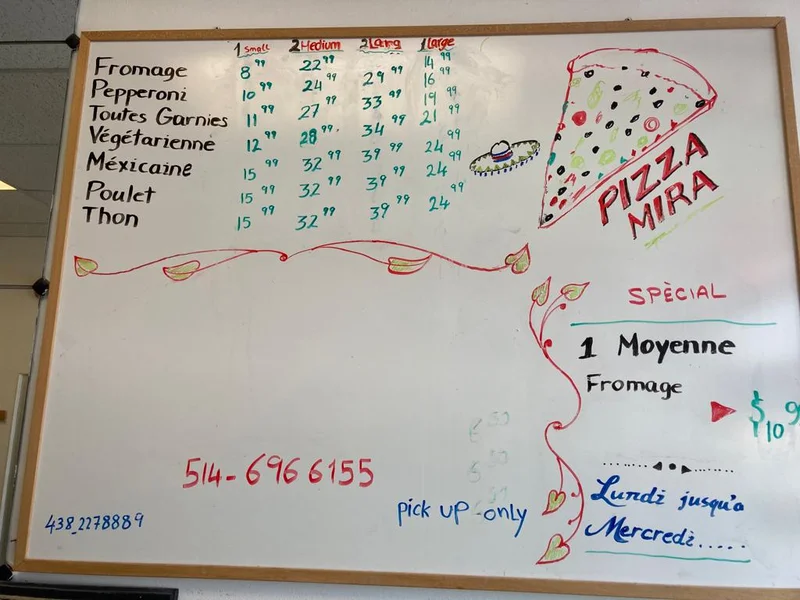 1 Small 2 Medium 2 Larg 1 Large
Fromage 8.99 22.99 29.99 14.99
Pepperoni 10.99 24.99 33.99 16.99
Toutes Garnies 11.99 27.99 34.99 19.99
Végétarienne 12.99 28.99 39.99 21.99
Méxicaine 15.99 32.99 39.99 24.99
Poulet 15.99 32.99 39.99 24.99
Thon 15.99 32.99 24.99
PIZZA
MIRA
SPÈCIAL
1 Moyenne
Fromage
$10 9
Lundi jusqu'a
Mercredi.....
514-6966155
pick up only
438_2278889